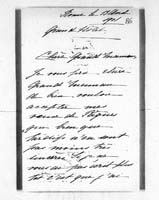 Rome le 13 Avril
1901
86
Grand Hôtel
Chère Grande Maman
Je vous prie chère
Grande Maman
de bien vouloir
accepter mes
vœux de Pâques
que bien que
tardifs n'en sont
pas moins très
sincères. Si je ne
vous ai pas écrit plus
tôt c'est que j'ai